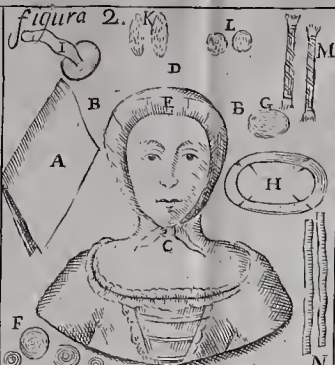 figura 2. K L
I M
D
B E B G
A H
C
F
N